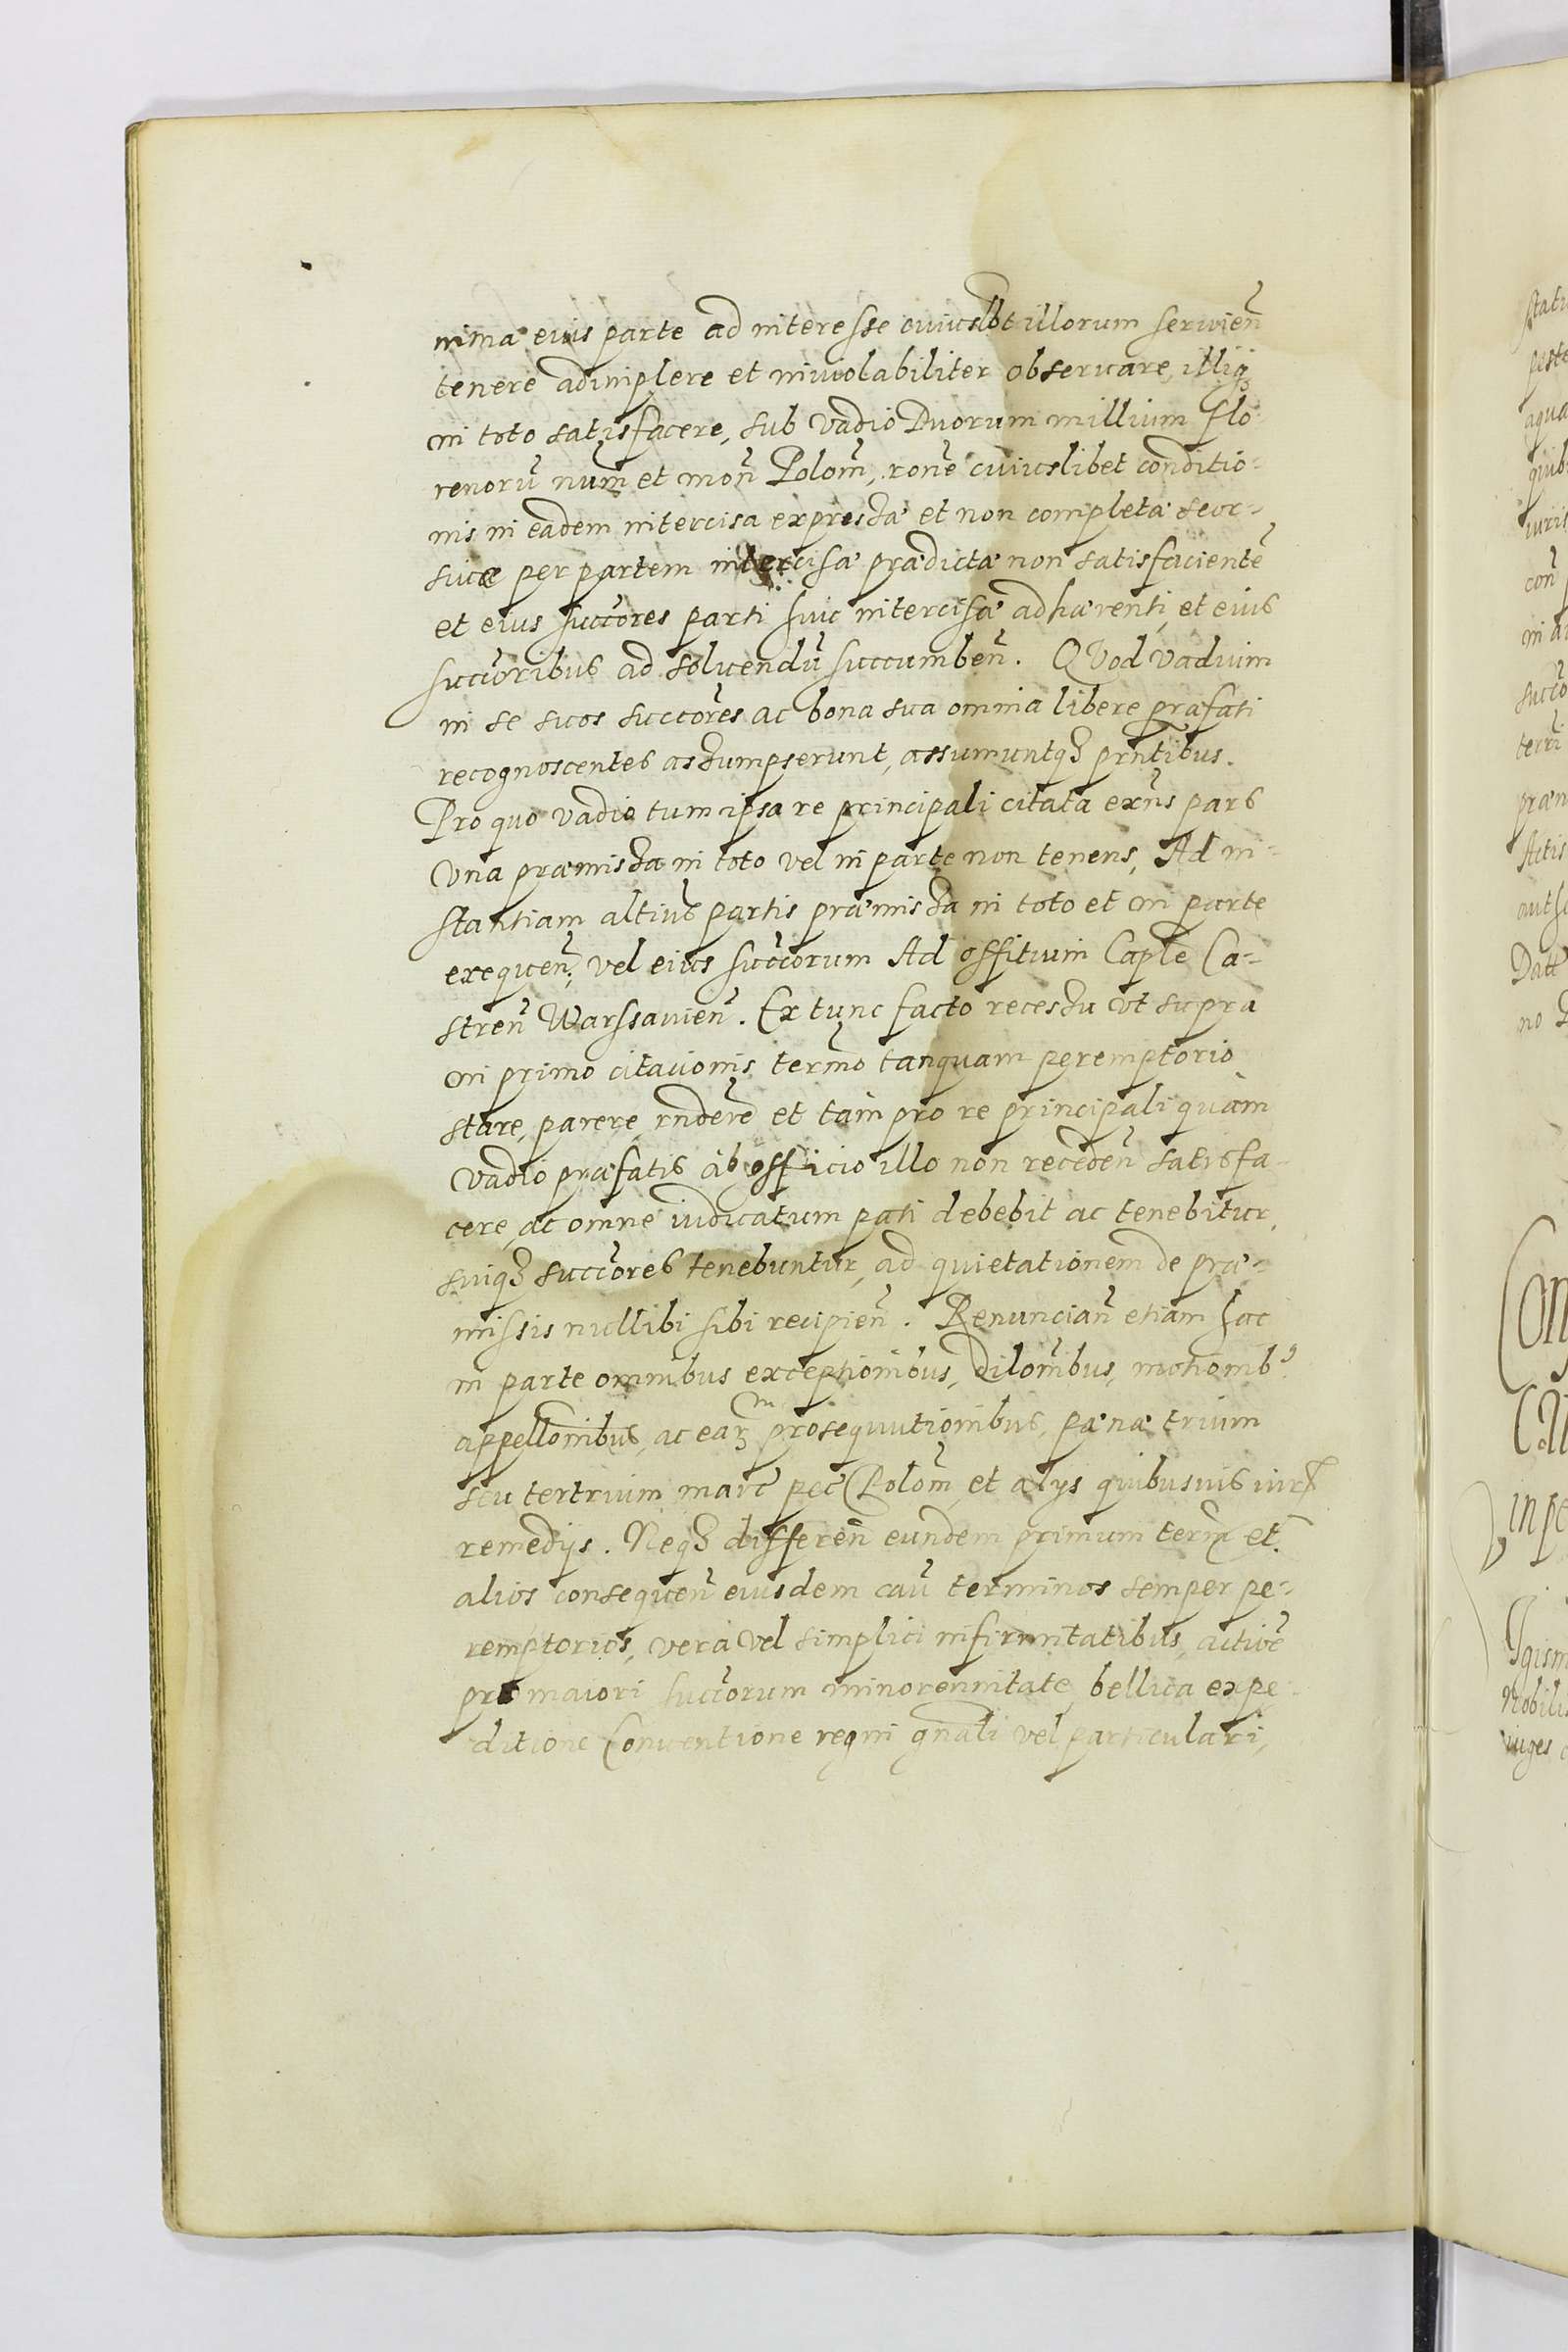 nima eius parte ad interesse cuiuslbt illorum servien̄
tenere adimplere et inviolabiliter observare, illiq₃
in toto satisfacere, sub vadio Duorum millium Flo-
renorū num̄ et mon̄ Polom̄, rone cuiuslibet conditio-
nis in eadem intercisa expressæ et non completæ seor-
sivæ per partem intercisæ prædictæ non satisfaciente
et eius succores parti huic intercisæ adhærenti, et eius
succoribus ad solvendū succumben̄. QVod vadium
in se suos succores ac bona sua omnia libere præfati
recognoscentes assumpserunt, assumuntq₃ prntibus.
Pro quo vadio tum ipsa re principali citata exns pars
Una præmissa in toto vel in parte non tenens, Ad in-
stantiam altius partis præmissa in toto et in parte
exequen̄, vel eius succorum Ad offitium Caple Ca-
stren̄ Warssavien̄. Ex tunc facto recessu vt supra
in primo citationis termo tanquam peremptorio
stare, parere rndere et tam pro re principali quàm
vadio præfatis ab officio illo non receden̄ satisfa-
cere, ac omne iudicatum pati debebit ac tenebitur,
suiq₃ succores tenebuntur, ad quietationem de præ-
missis nullibi sibi recipien̄. Renuncian̄ etiam hac
in parte omnibus exceptionibus, dilombus, motionib⁹
appellonibus, ac earm prosequutionibus, pænæ trium
seu ter trium marc pec Polom̄ et alys quibusuis iuris
remedijs. Neq₃ differen̄ eundem primum term et
alios consequen̄ eiusdem cau terminos semper pe-
remptorios, vera vel simplici infirmitatibus, actione
pro maiori succorum minorennitate, bellica expe-
ditione Conventione regni gnali vel particulari,